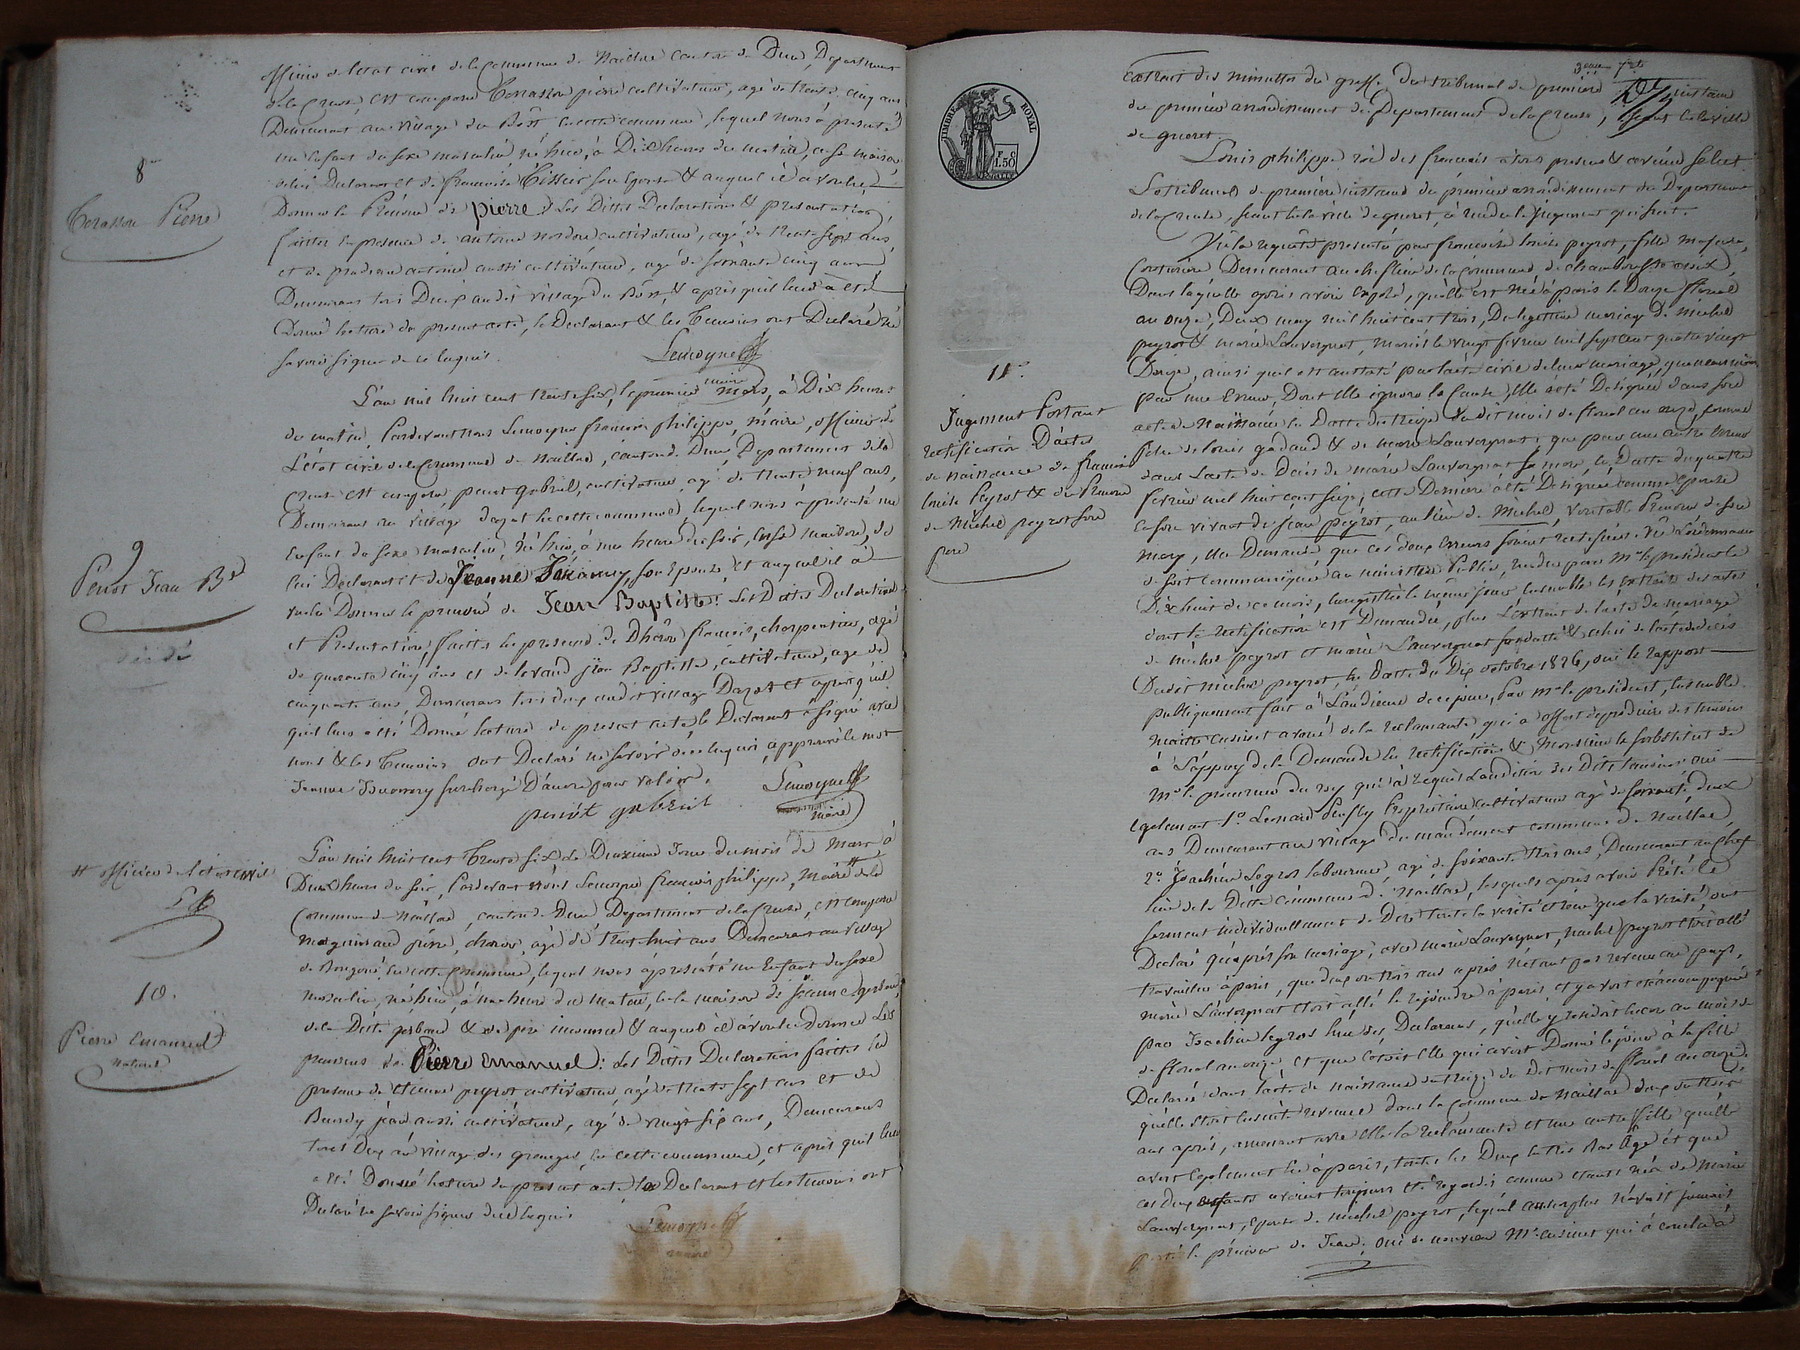 officier de l'état civil de la Commune de Naillac Canton de Dun, Département
de la Creuse est comparu Terrasson pierre cultivateur, agé de trente cinq ans
Demeurant au village du Bost en cette commune lequel nous à présenté
un Enfant du sexe masculin, né hier, à Dix heures du matin, en sa maison
de lui Declarant et de françoise Tissier son Epouse & auquel il à voulu
Donner le Prénom de pierre. Les Dittes Declarations & présentation
faittes en présence de antoine cultivateur, agé de trente sept ans,
et de antoine aussi cultivateur, agé de soixante cinq ans
Demeurans tous Deux au dit village du Bost, & après qu'il leur a été
Donné lecture du présent acte, le Declarant & les Temoins ont Declaré ne
savoir signer de ce Enquis.
Lemoyne
maire
8
Terrasson Pierre
L'an mil huit cent trente six, le premier mars, à Dix heures
du matin, Pardevant Nous Lemoyne françois philippe, Maire, officier de
L'état civil de la Commune de Naillac, canton de Dun Département de la
Creuse est comparu penot gabriel, cultivateur, agé de trente neuf ans,
Demeurant au village dazat en cette commune, lequel nous a présenté un
Enfant du sexe masculin, né hier, à une heure du soir, en sa maison, de
lui Declarant et de Jeanne son Epouse, et auquel il à
voulu Donner le prénom de Jean Baptiste. Les Dittes Declaration
et Présentation, faittes en présence de françois, charpentier, agé
de quarante cinq ans et de jean Baptiste, cultivateur, agé de
cinquante ans, Demeurans tous deux au dit village Dazat et après qu'il
qu'il leur a été Donné lecture du présent acte, le Declarant à signé avec
nous & les Temoins ont Declaré ne savoir de ce Enquis, approuvé le mot
Jeanne surchargé D'autre pour valoir.
penot gabriel
Lemoyne
maire
9
Penot Jean Bte
L'an mil huit cent Trente six, Le Deuxieme Jour du mois de Mars à
Deux heures du soir, Pardevant Nous Lemoyne françois philippe, Maire de la
Commune de Naillac, canton de Dun Département de la Creuse, est comparu
pierre, agé de trente huit ans Demeurant au village
de en cette Commune, lequel nous à présenté un Enfant du sexe
masculin, né hier, à heures du matin, en la maison de Jeanne
de la Ditte & de père inconnu & auquel il à voulu donner les
prenoms de Pierre Emanuel : Les Dittes Declarations faittes en
présence de Etienne peyrot cultivateur, agé de trente sept ans et de
jean aussi cultivateur, agé de vingt six ans, Demeurans
tous Deux au village des granges, en cette commune, et après qu'il leur
a été Donné lecture du présent acte Le Declarant et les temoins ont
Declaré ne savoir signer de ce Enquis
Lemoyne
maire
# officier de l'état civil
10.
Pierre Emanuel
naturel
TIMBRE ROYAL
F. C.
1.50
11.
Jugement Portant
rectification D'acte
de naissance de françoise
louise Peyrot & du Prenom
de Michel peyrot son
père
Extrait des minutes du greffe du tribunal de première instance
du premier arrondissement du Département de la Creuse, séant en la ville
de gueret.
Louis philippe roi des francais à tous presens & avenir salut.
Le tribunal de première instance du premier arrondissement du Departement
de la Creuse, séant en la ville de gueret, à rendu le Jugement qui suit.
Vu la requête présenté par françoise louise peyrot, fille majeure,
Couturiere Demeurant au chef lieu de la Commune, de
Dans laquelle après avoir exposé, qu'elle est née à paris le Douze floreal
an onze, Deux may mil huit cent trois, Du legitime mariage De michel
peyrot & marie Lauvergnat, mariés le vingt fevrier mil sept cent quatre vingt
Douze, ainsi qu'il est constaté par l'acte civil de leur mariage, que neanmoins
par une Erreur, Dont Elle ignore la Cause, Elle a été Désignée dans son
acte de Naissance en Datte du treize du dit mois de floreal an onze, comme
fille de louis gadaud & de marie Lauvergnat ; que par une autre Erreur
dans l'acte de Décès de marie Lauvergnat sa mere, en Datte du quatre
fevrier mil huit cent seize, cette Derniere a été Désignée comme épouse
en son vivant de jean peyrot, au lieu de Michel, veritable Prenom de son
mary, Elle Demande, que ces deux Erreurs soient rectifiées. Vu L'ordonnance
de soit communiquée au ministère Public, rendue par Mr le président le
Dix huit de ce mois, Enregistré le même jour, Ensemble les Extraits des actes
dont la Rectification est Demandée, plus L'extrait de l'acte de mariage
de michel peyrot et marie Lauvergnat susdatté & celui de l'acte de décès
Dudit michel peyrot, en Datte du Dix octobre 1826, oui le rapport
publiquement fait à L'audience de ce jour, Par Mr le président, Ensemble
maitre avoué de la reclamante, qui a offert de produire des temoins
à L'appuy de la Demande en Rectification & Monsieur le substitut de
Mr le procureur du roy qui à requis L'audition des Dits temoins oui
Egalement 1° Leonard Propriétaire cultivateur agé de soixante deux
ans Demeurant au village du commune de Naillac,
2° Joachim Legros laboureur, agé de soixante trois ans, Demeurant au chef
lieu de la Ditte Commune de Naillac, lesquels après avoir Prêté le
serment individuellement de Dire toute la vérité & rien que la vérité, ont
Declaré qu'après son mariage, avec marie Lauvergnat, michel peyrot étoit allé
travailler à paris, que deux ou trois ans après n'étant pas revenu au pays,
marie Lauvergnat étoit allé le rejoindre à paris et y avoit été accompagnée
par Joachim Legros l'un des Declarans, qu'elle y residoit encore au mois de
de floreal an onze, et que c'étoit Elle qui avoit Donné le jour à la fille
Declarée dans l'acte de naissance du treize du Dit mois de floreal an onze,
qu'elle étoit Ensuite revenue dans la Commune de Naillac deux ou trois
ans après, amenant avec Elle la reclamante et une autre fille qu'elle
avoit Egalement Eu à paris, toutes les Deux en très Bas âge et que
ces deux Enfants avoient toujours été regardés comme étants nés de Marie
Lauvergnat, Epouse de michel peyrot, lequel n'avoit jamais
porté le prénom de Jean. Oui de nouveau Me qui à conclu à